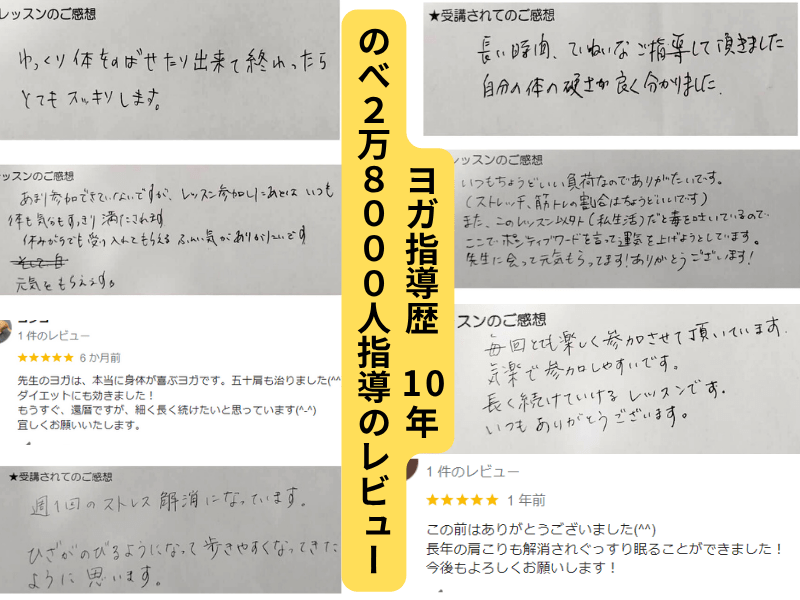 レッスンのご感想
ゆっくり体をのばせたり出来て終わったら
とてもスッキリします。
ッスンのご感想
あまり参加できていないですが、レッスン参加したあとはいつも
体も気分もすっきり満たされます
休みがちでも受け入れてもらえるふんい気がありがたいです
元気をもらえます。
1 件のレビュー
★★★★★ 6 か月前
先生のヨガは、本当に身体が喜ぶヨガです。五十肩も治りました(^^
ダイエットにも効きました！
もうすぐ、還暦ですが、細く長く続けたいと思っています(^-^)
宜しくお願いいたします。
★受講されてのご感想
週1回のストレス解消になっています。
ひざがのびるようになって歩きやすくなってきた
ように思います。
のべ２万８０００人指導のレビュー
ヨガ指導歴　10年
★受講されてのご感想
長い時間、ていねいなご指導して頂きました
自分の体の硬さが良く分かりました.
レッスンのご感想
いつもちょうどいい負荷なのでありがたいです。
(ストレッチ、筋トレの割合はちょうどいいです)
また、このレッスン以外(私生活)だと毒を吐いているので
ここでポジティブワードを言って運気を上げようとしています。
先生に会って元気もらってます!ありがとうございます!
スンのご感想
毎回とても楽しく参加させて頂いています.
気楽で参加しやすいです。
長く続けていけるレッスンです.
いつもありがとうございます。
1 件のレビュー
★★★★★ 1 年前
この前はありがとうございました(^^)
長年の肩こりも解消されぐっすり眠ることができました！
今後もよろしくお願いします！